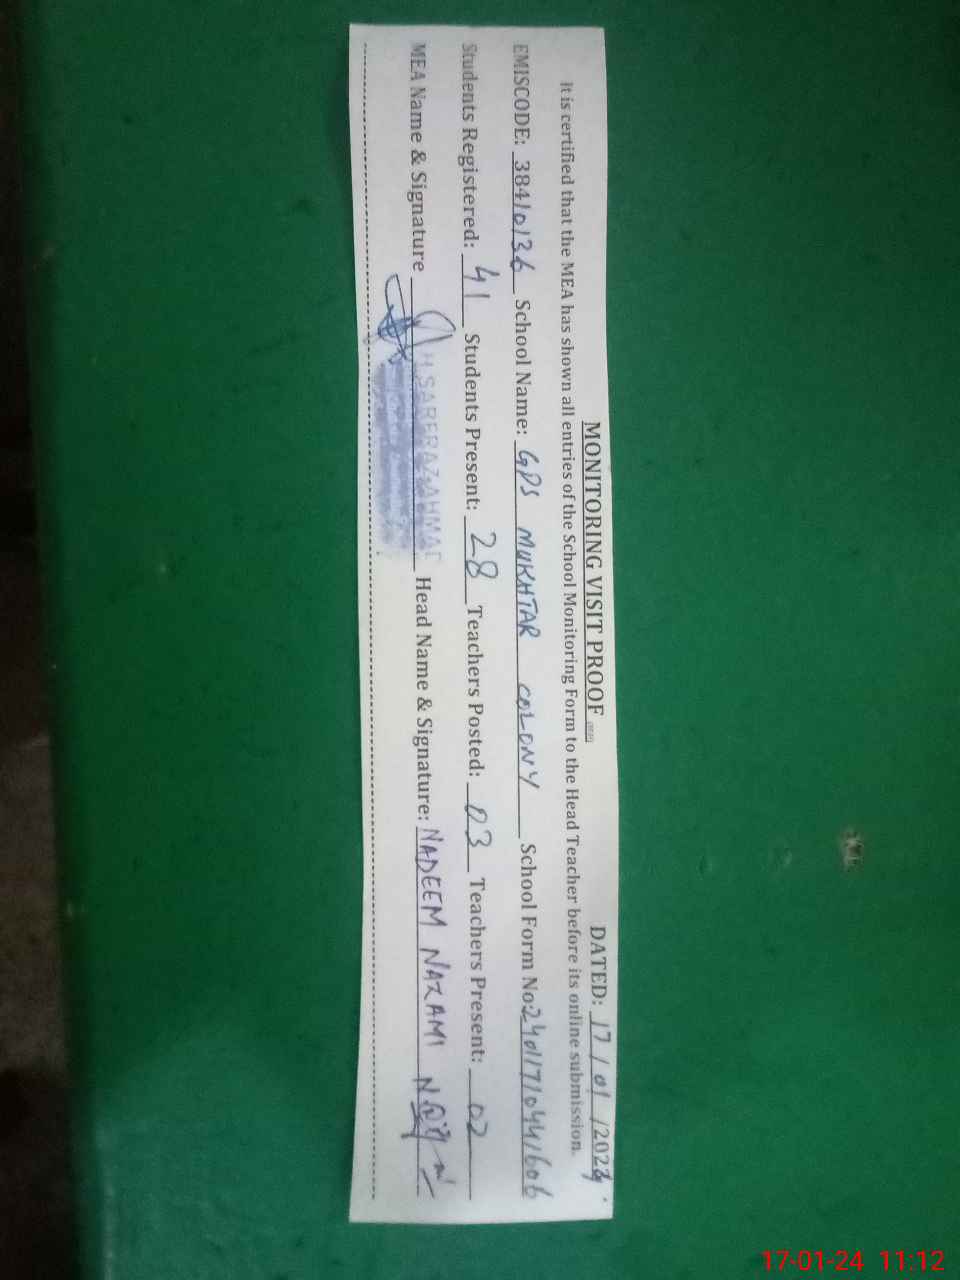 MONITORING VISIT PROOF DATED: 17/01/2024
It is certified that the MEA has shown all entries of the School Monitoring Form to the Head Teacher before its online submission.
EMISCODE: 38410136 School Name: GPS MUKHTAR COLONY School Form No: 24011710441606
Students Registered: 41 Students Present: 28 Teachers Posted: 03 Teachers Present: 02
MEA Name & Signature SARFRAZ AHMAD Head Name & Signature: NADEEM NAZAMI
17-01-24 11:12